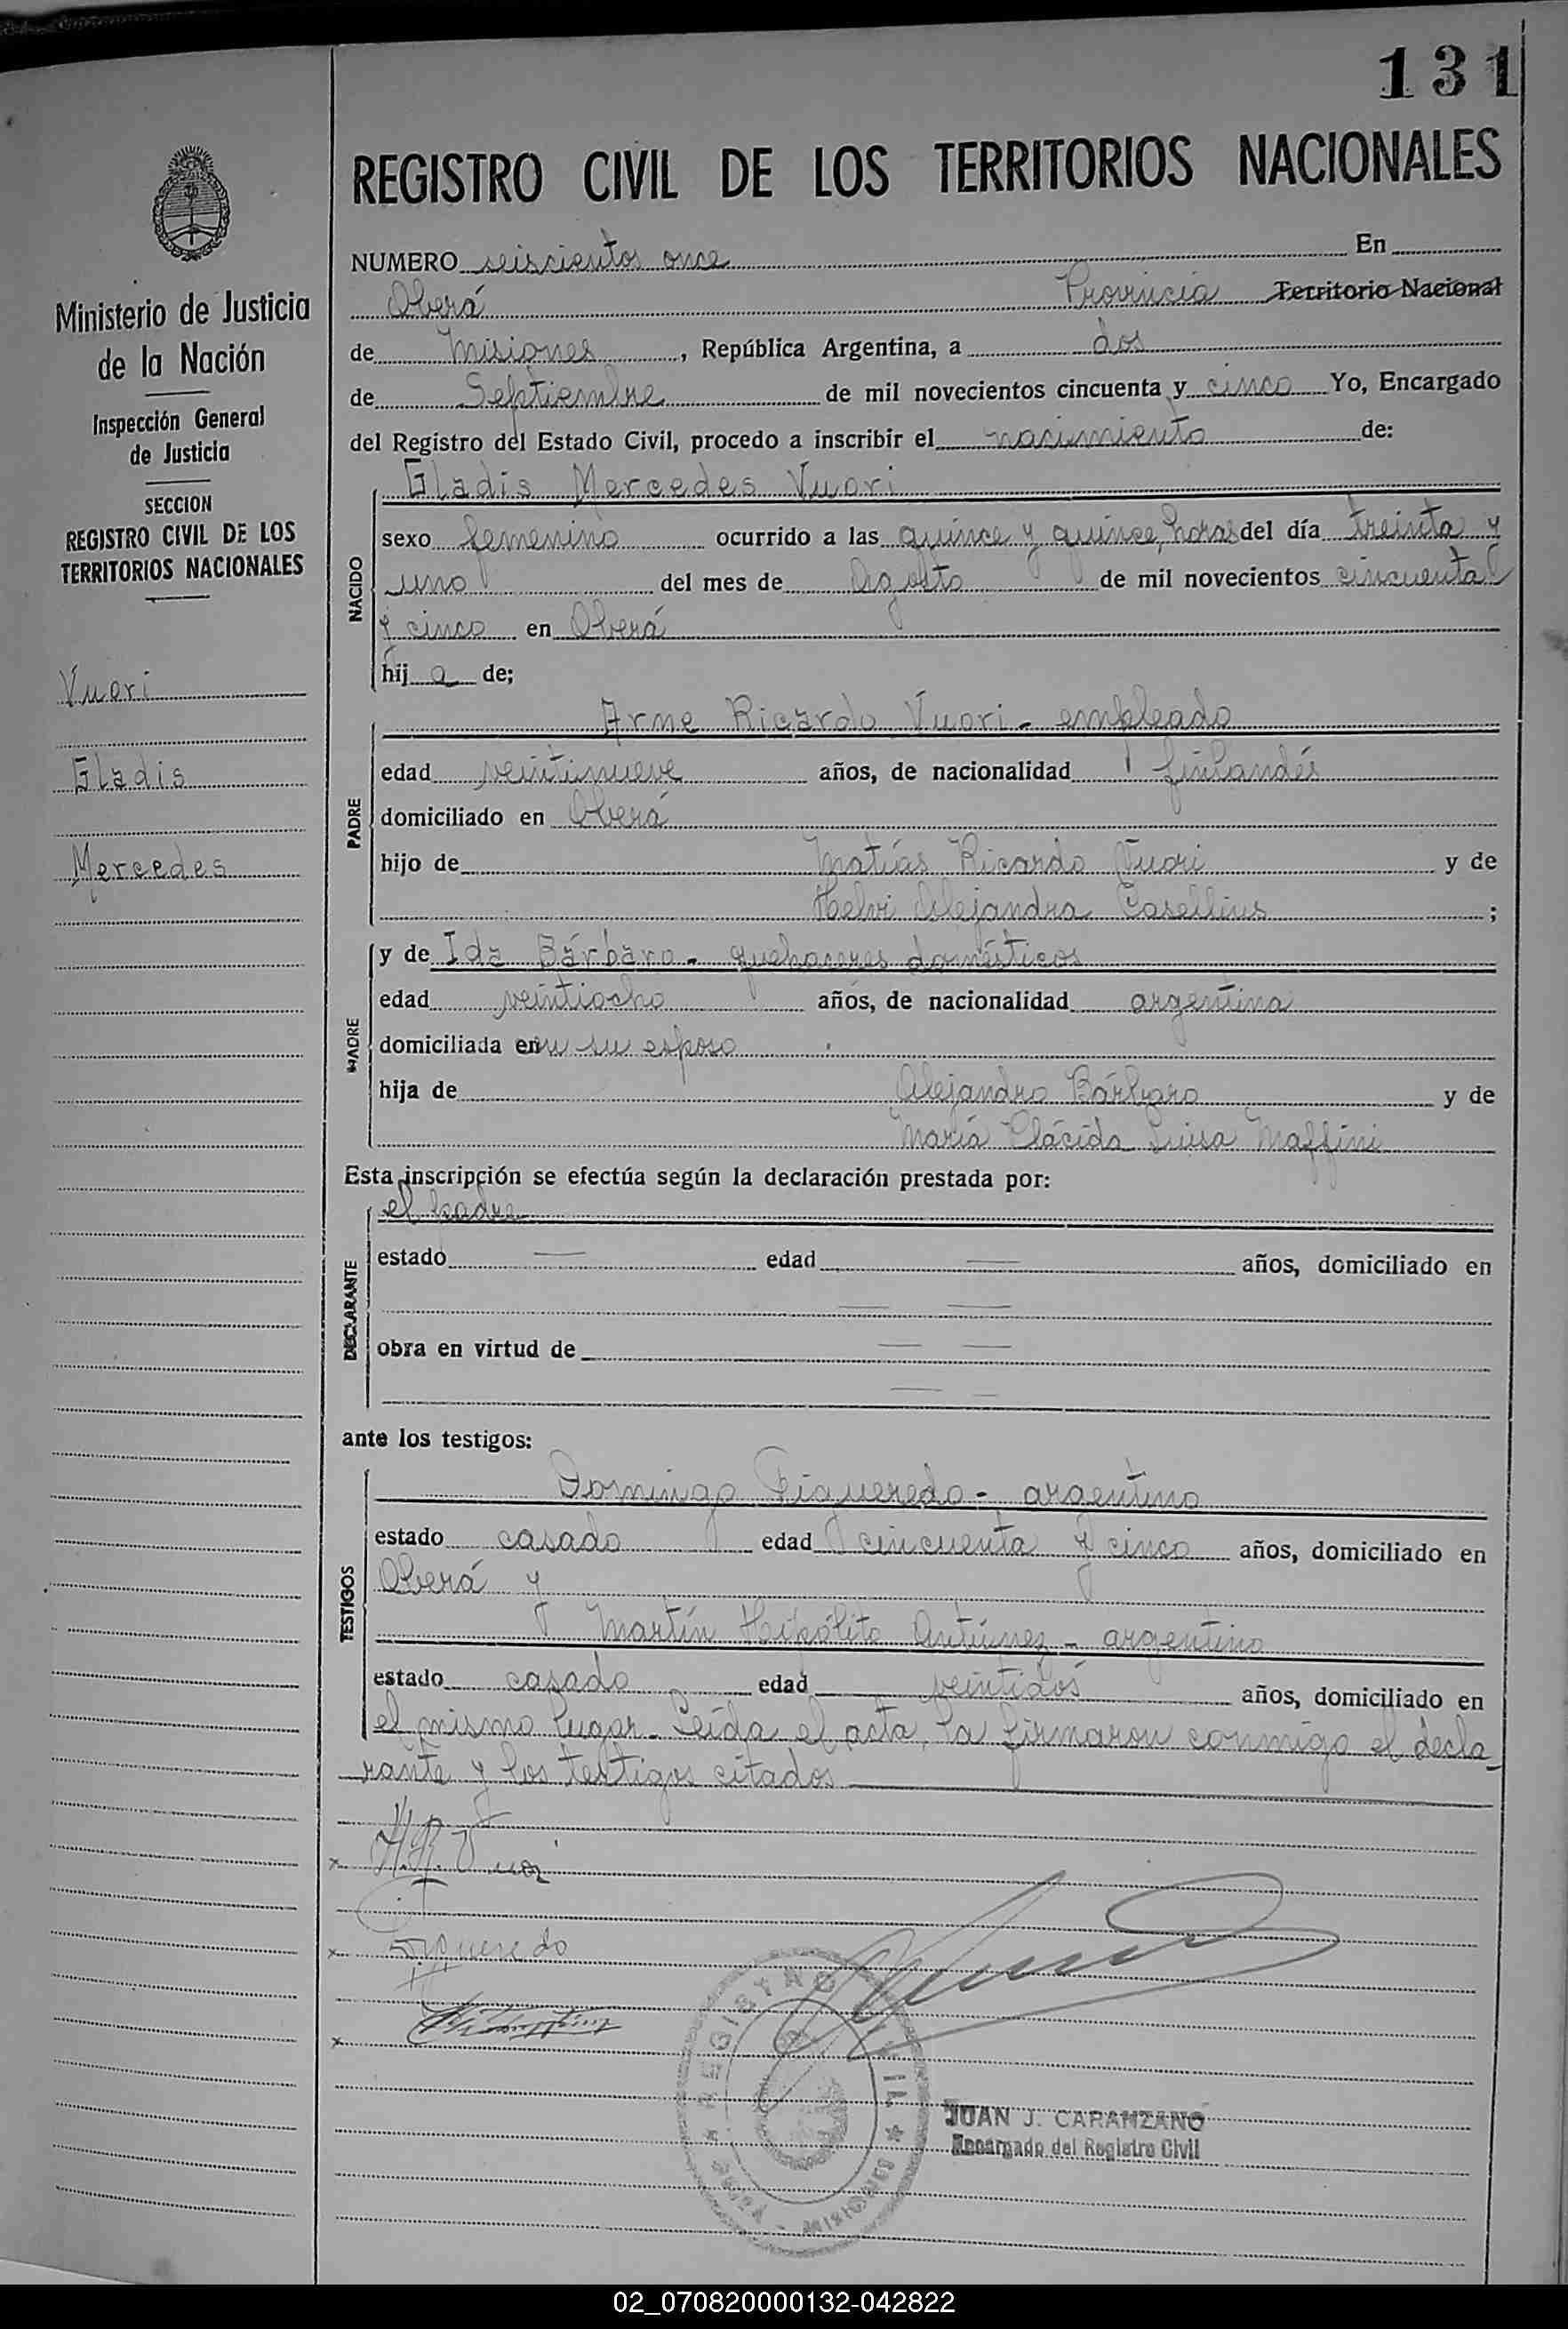 131
REGISTRO CIVIL DE LOS TERRITORIOS NACIONALES
Ministerio de Justicia
de la Nación
Inspección General
de Justicia
SECCION
REGISTRO CIVIL DE LOS
TERRITORIOS NACIONALES
Vuori
Gladis
Mercedes
NUMERO seiscientos once En
Oberá Provincia Territorio Nacional
de Misiones, República Argentina, a dos
de Septiembre de mil novecientos cincuenta y cinco Yo, Encargado
del Registro del Estado Civil, procedo a inscribir el nacimiento de:
NACIDO
Gladis Mercedes Vuori
sexo femenino ocurrido a las quince y quince, horas del día treinta y
uno del mes de Agosto de mil novecientos cincuenta
y cinco en Oberá
hij a de;
PADRE
Arne Ricardo Vuori - empleado
edad veintinueve años, de nacionalidad finlandés
domiciliado en Oberá
hijo de Matías Ricardo Vuori y de
Helvi Alejandra Casellius ;
MADRE
y de Ida Bárbaro - quehaceres domésticos
edad veintiocho años, de nacionalidad argentina
domiciliada en su esposo
hija de Alejandro Bárbaro y de
María Plácida Luisa Maffini
Esta inscripción se efectúa según la declaración prestada por:
DECLARANTE
el padre
estado — edad — años, domiciliado en
— —
obra en virtud de — —
— —
ante los testigos:
TESTIGOS
Domingo Figueredo - argentino
estado casado edad cincuenta y cinco años, domiciliado en
Oberá y
Martín Hipólito Antúnez - argentino
estado casado edad veintidós años, domiciliado en
el mismo lugar. Leída el acta, la firmaron conmigo el decla-
rante y los testigos citados
x A.R. Vuori
x Figueredo
x
REGISTRO CIVIL
MISIONES
JUAN J. CARANZANO
Encargado del Registro Civil
02_070820000132-042822